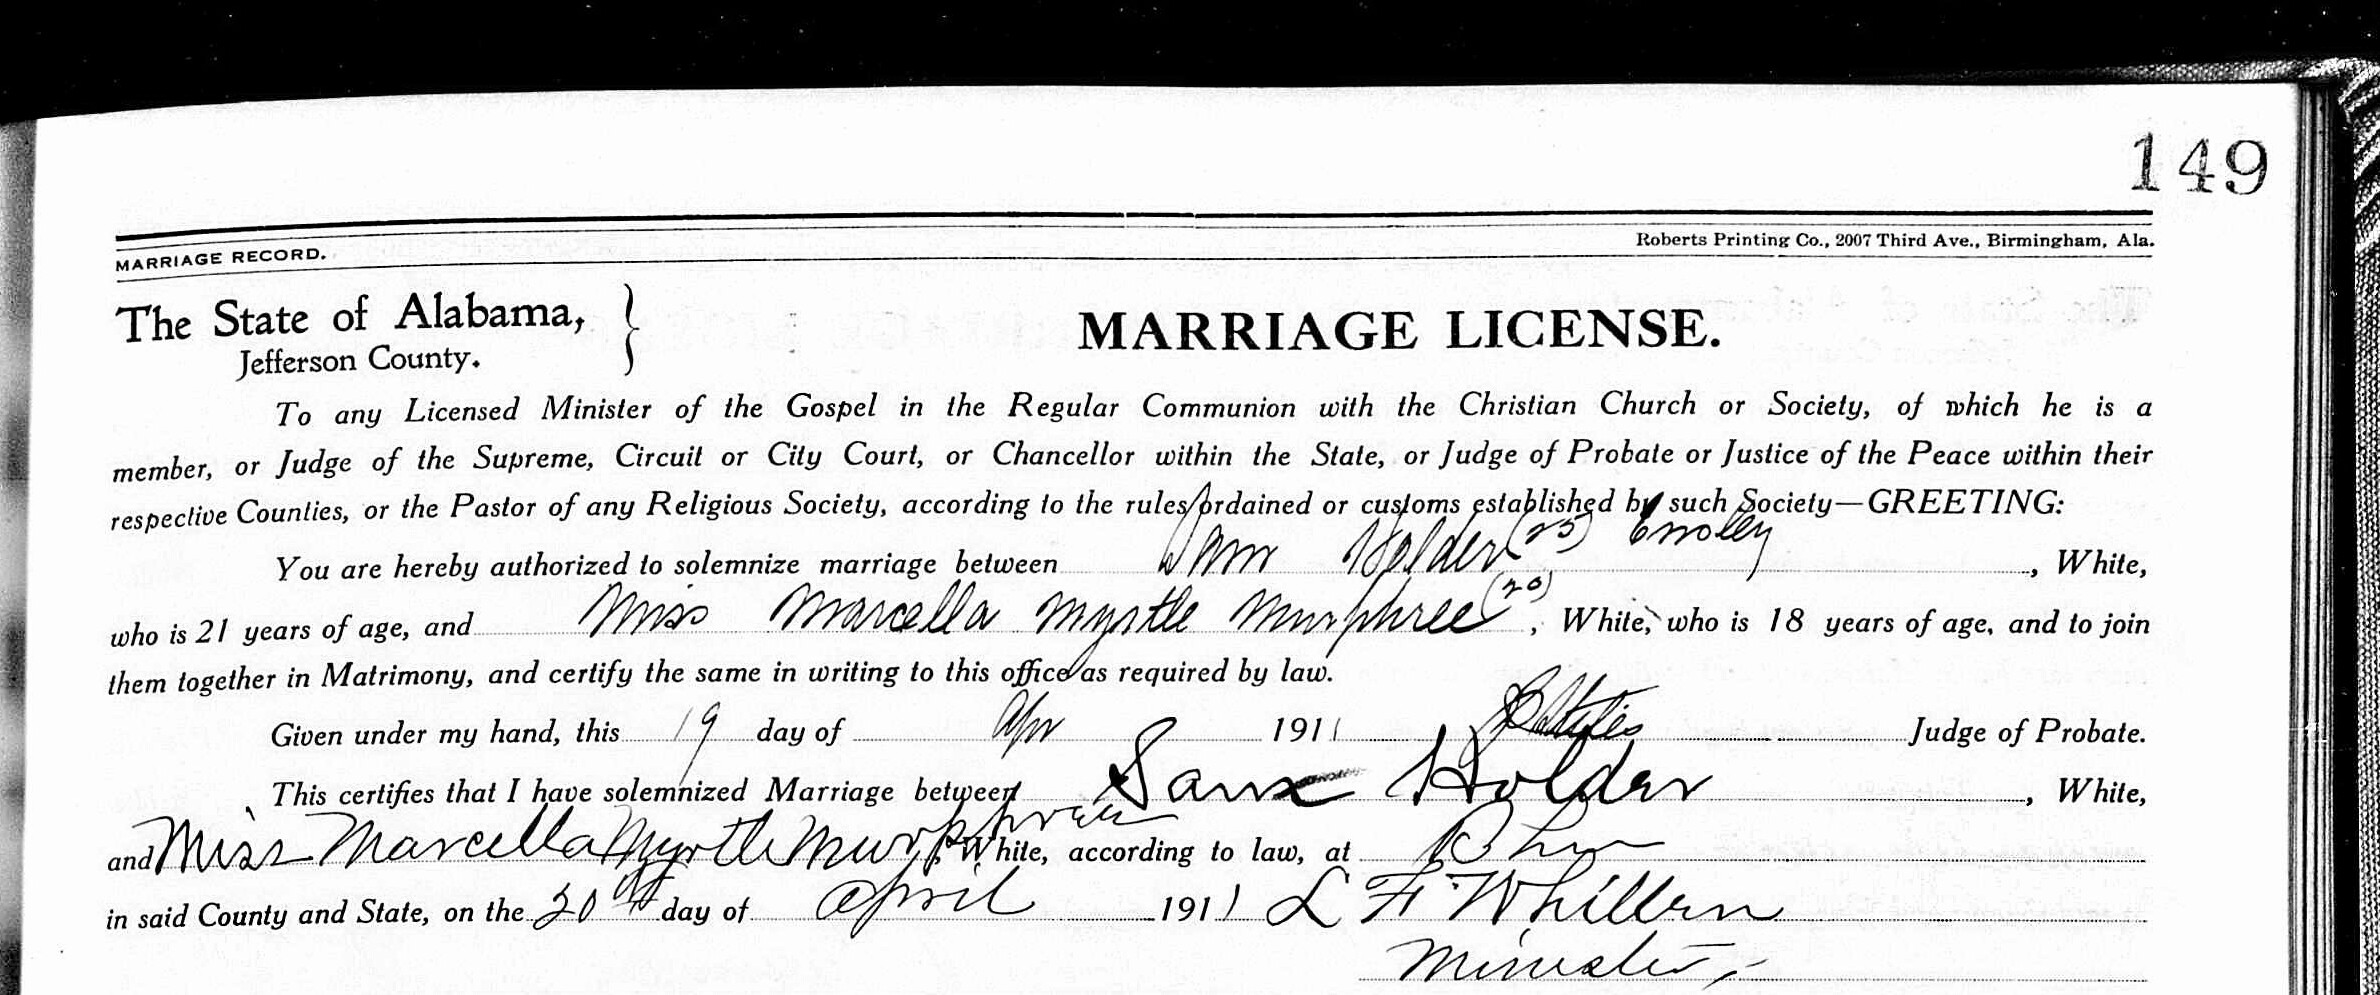 149
MARRIAGE RECORD.
Roberts Printing Co., 2007 Third Ave., Birmingham, Ala.
The State of Alabama,
Jefferson County.
MARRIAGE LICENSE.
To any Licensed Minister of the Gospel in the Regular Communion with the Christian Church or Society, of which he is a
member, or Judge of the Supreme, Circuit or City Court, or Chancellor within the State, or Judge of Probate or Justice of the Peace within their
respective Counties, or the Pastor of any Religious Society, according to the rules ordained or customs established by such Society—GREETING:
You are hereby authorized to solemnize marriage between Sam Holder (25) Ensley, White,
who is 21 years of age, and Miss Marcella Myrtle Murphree (20), White, who is 18 years of age, and to join
them together in Matrimony, and certify the same in writing to this office as required by law.
Given under my hand, this 19 day of Apr 1911 Judge of Probate.
This certifies that I have solemnized Marriage between Sam Holder, White,
and Miss Marcella Myrtle Murphree, White, according to law, at
in said County and State, on the 20th day of April 1911 L F Whitten
Minister